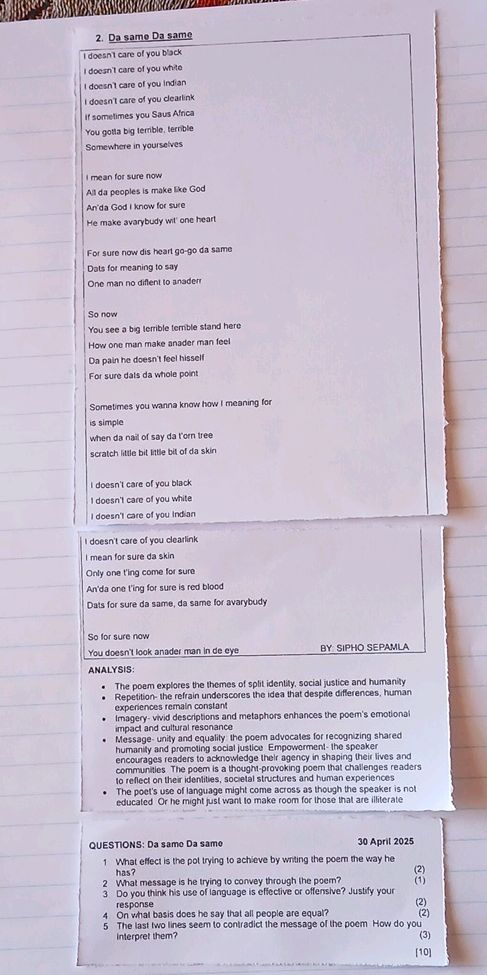 2. Da same Da same
I doesn't care of you black
I doesn't care of you white
I doesn't care of you Indian
I doesn't care of you clearlink
If sometimes you Saus Africa
You gotta big terrible, terrible
Somewhere in yourselves
I mean for sure now
All da peoples is make like God
An'da God I know for sure
He make avarybudy wit' one heart
For sure now dis heart go-go da same
Dats for meaning to say
One man no diflent to anaderr
So now
You see a big terrible terrible stand here
How one man make anader man feel
Da pain he doesn't feel hisself
For sure dats da whole point
Sometimes you wanna know how I meaning for
is simple
when da nail of say da t'orn tree
scratch little bit little bit of da skin
I doesn't care of you black
I doesn't care of you white
I doesn't care of you Indian
I doesn't care of you clearlink
I mean for sure da skin
Only one t'ing come for sure
An'da one t'ing for sure is red blood
Dats for sure da same, da same for avarybudy
So for sure now
You doesn't look anader man in de eye BY: SIPHO SEPAMLA
ANALYSIS:
• The poem explores the themes of split identity, social justice and humanity
• Repetition- the refrain underscores the idea that despite differences, human
experiences remain constant
• Imagery- vivid descriptions and metaphors enhances the poem's emotional
impact and cultural resonance
• Message- unity and equality: the poem advocates for recognizing shared
humanity and promoting social justice Empowerment- the speaker
encourages readers to acknowledge their agency in shaping their lives and
communities The poem is a thought-provoking poem that challenges readers
to reflect on their identities, societal structures and human experiences
• The poet's use of language might come across as though the speaker is not
educated Or he might just want to make room for those that are illiterate
QUESTIONS: Da same Da same 30 April 2025
1 What effect is the pot trying to achieve by writing the poem the way he
has? (2)
2 What message is he trying to convey through the poem? (1)
3 Do you think his use of language is effective or offensive? Justify your
response (2)
4 On what basis does he say that all people are equal? (2)
5 The last two lines seem to contradict the message of the poem How do you
interpret them? (3)
[10]